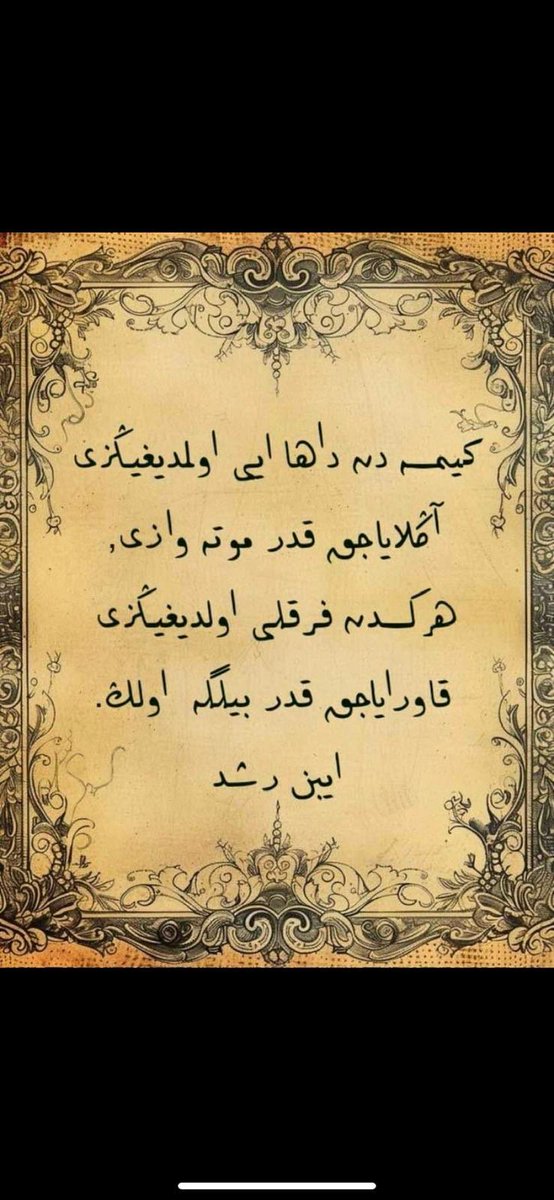 كیمسه دن داها ایی اولمدیغیڭزی
آڭلایاجق قدر موته وازی,
هركسدن فرقلی اولدیغیڭزی
قاورایاجق قدر بیلگه اولڭ.
ایبن رشد